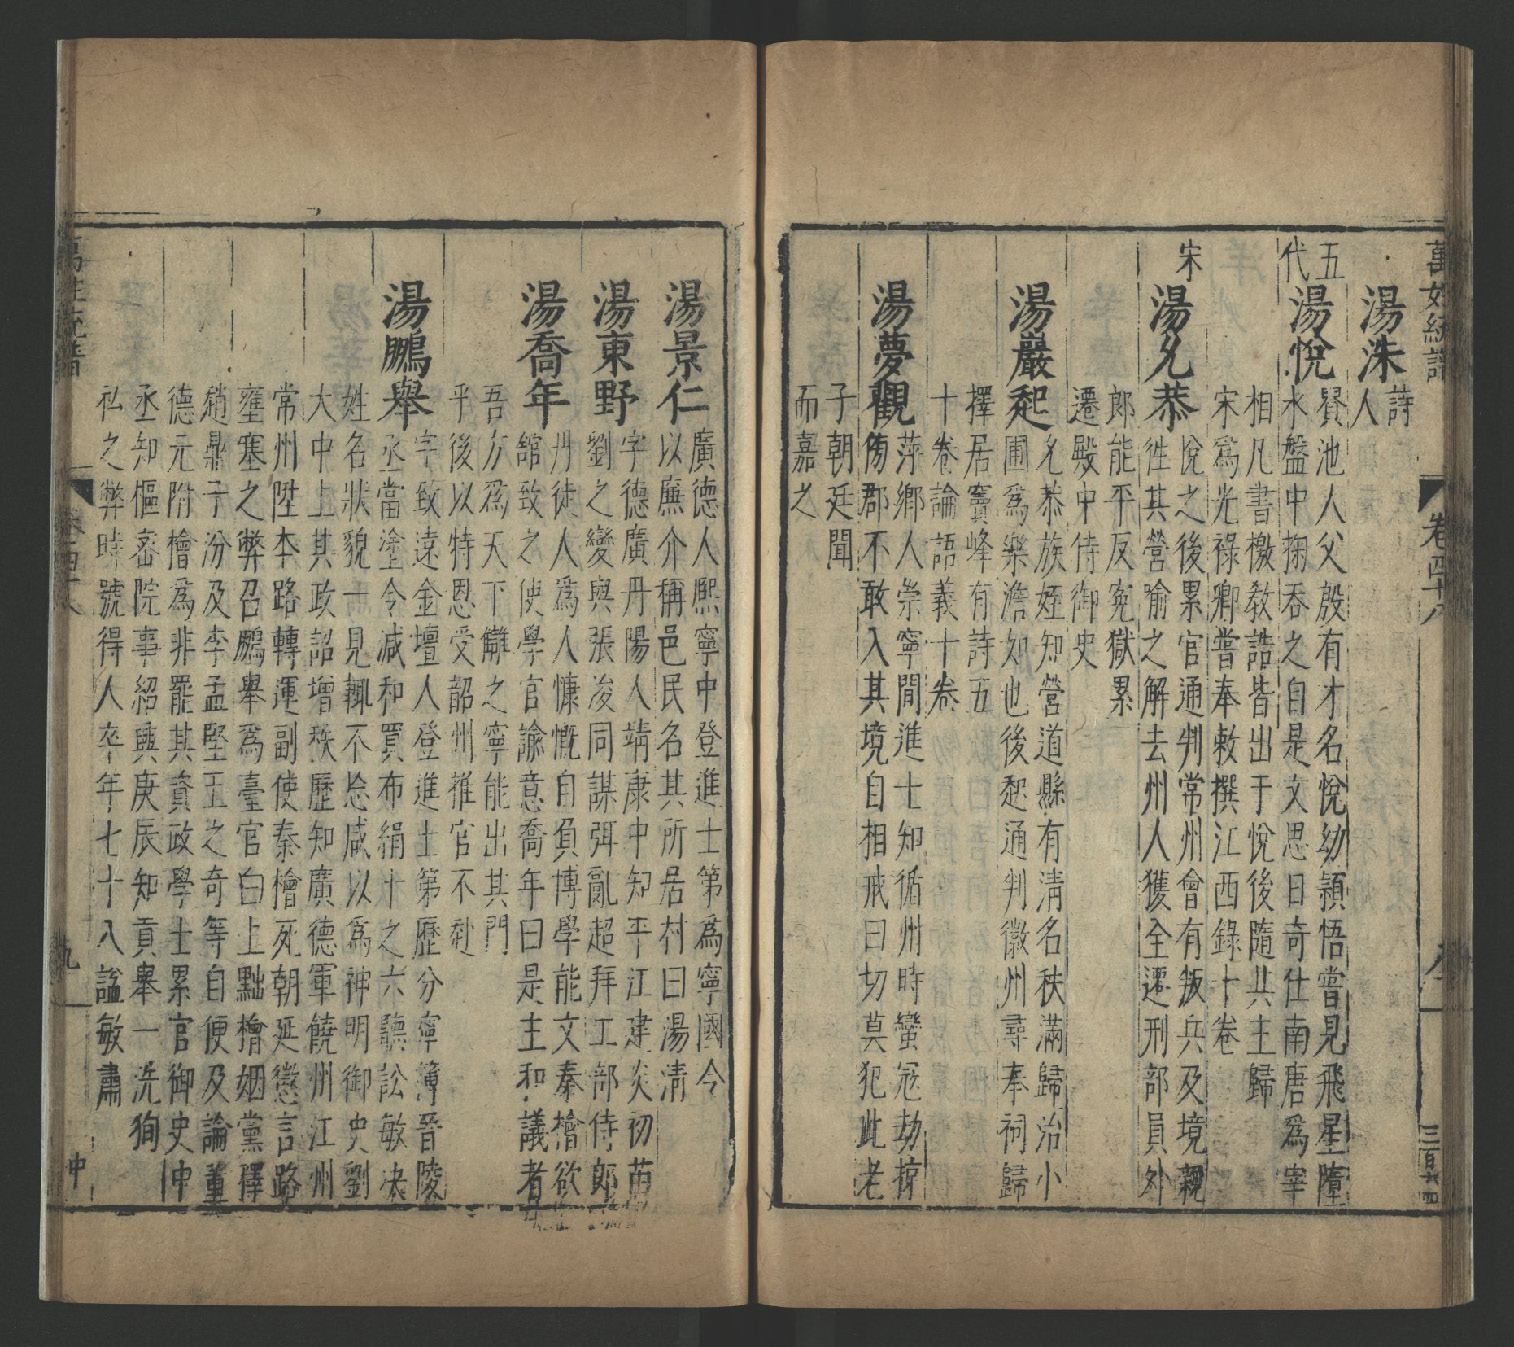 萬姓統譜
卷四十八
湯洙
詩
人
五
代
湯悅
貴池人父殷有才名悅幼頴悟嘗見飛星墮
水盤中掬吞之自是文思日奇仕南唐爲宰
相凡書檄教誥皆出于悅後隨其主歸
宋爲光祿卿嘗奉敕撰江西錄十卷
宋
湯允恭
悅之後累官通判常州會有叛兵及境親
徃其營喻之解去州人獲全遷刑部員外
郎能平反寃獄累
遷殿中侍御史
湯巖起
允恭族姪知營道縣有清名秩滿歸治小
圃爲樂澹如也後起通判徽州尋奉祠歸
擇居寳峰有詩五
十卷論語義十卷
湯夢觀
萍鄉人崇寧間進士知循州時蠻冦劫掠
傍郡不敢入其境自相戒曰切莫犯此老
子朝廷聞
而嘉之
湯景仁
廣德人熙寧中登進士第爲寧國令
以廉介稱邑民名其所居村曰湯清
湯東野
字德廣丹陽人靖康中知平江建炎初苗
劉之變與張浚同謀弭亂超拜工部侍郎
湯喬年
丹徒人爲人慷慨自負博學能文秦檜欲
舘致之使學官諭意喬年曰是主和議者
吾方爲天下讎之寧能出其門
平後以特恩受韶州推官不赴
湯鵬舉
字致遠金壇人登進士第歷分寧簿晉陵
丞當塗令减和買布絹十之六聽訟敏决
姓名狀貌一見輙不忘咸以爲神明御史劉
大中上其政詔增秩歷知廣德軍饒州江州
常州陞本路轉運副使秦檜死朝延懲言路
壅塞之弊召鵬舉爲臺官白上黜檜姻黨釋
趙鼎子汾及李孟堅王之奇等自便及論董
德元附檜爲非罷其資政學士累官御史中
丞知樞密院事紹興庚辰知貢舉一洗狥
私之弊時號得人卒年七十八謚敏肅
萬姓統譜
卷四十八
九
中